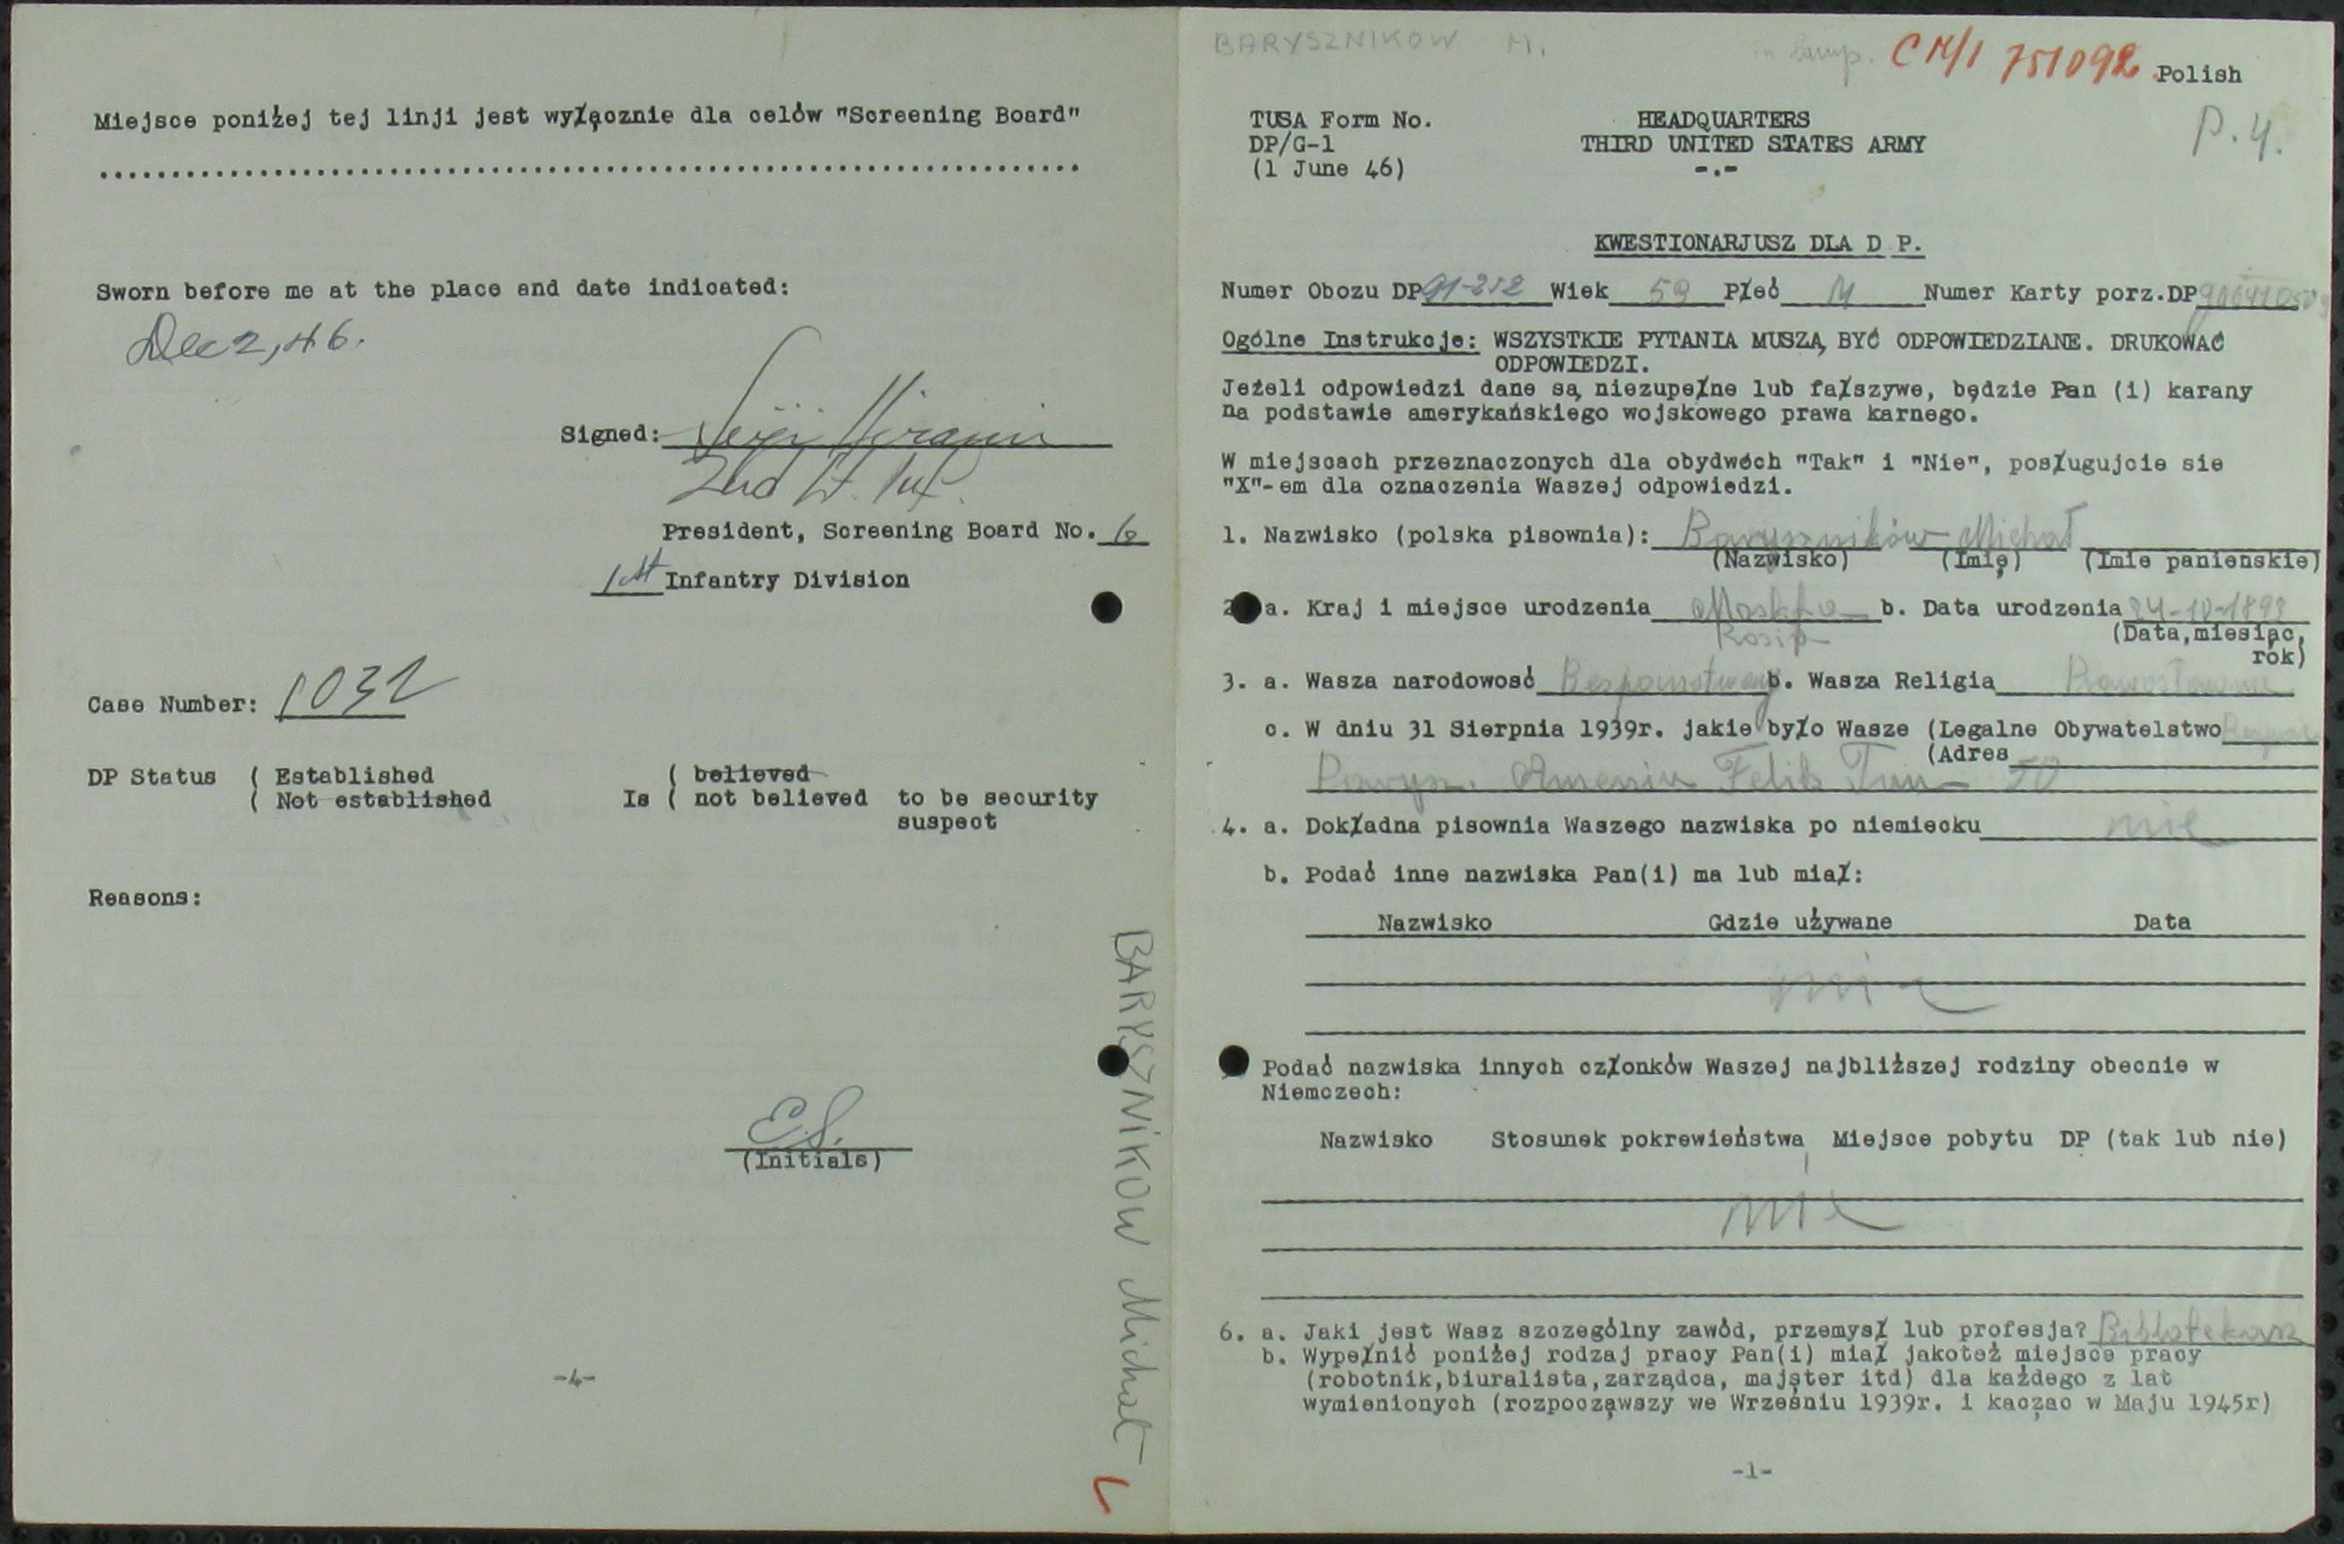 Miejsce poniżej tej linji jest wyłącznie dla celów "Screening Board"
Sworn before me at the place and date indicated:
Dec 2, 46.
Signed:
2nd Lt. Inf.
President, Screening Board No. 6
1st Infantry Division
Case Number: 1032
DP Status ( Established
( Not established
Is ( believed
( not believed to be security
suspect
Reasons:
E.S.
(Initials)
-4-
BARYSZNIKOW Michał
BARYSZNIKOW M.
CM/1 751092 Polish
P.4.
TUSA Form No.
DP/G-1
(1 June 46)
HEADQUARTERS
THIRD UNITED STATES ARMY
-.-
KWESTIONARJUSZ DLA D P.
Numer Obozu DP 91-252 Wiek 53 Płeć M Numer Karty porz.DP
Ogólne Instrukcje: WSZYSTKIE PYTANIA MUSZĄ BYĆ ODPOWIEDZIANE. DRUKOWAĆ
ODPOWIEDZI.
Jeżeli odpowiedzi dane są niezupełne lub fałszywe, będzie Pan (i) karany
na podstawie amerykańskiego wojskowego prawa karnego.
W miejscach przeznaczonych dla obydwóch "Tak" i "Nie", posługujcie sie
"X"-em dla oznaczenia Waszej odpowiedzi.
1. Nazwisko (polska pisownia): Baryszników Michał
(Nazwisko) (Imię) (Imie panienskie)
2. a. Kraj i miejsce urodzenia Moskfa b. Data urodzenia 24-10-1893
Rosip (Data,miesiąc,
rok)
3. a. Wasza narodowość Bespanstwowy b. Wasza Religia Prawosławna
c. W dniu 31 Sierpnia 1939r. jakie było Wasze (Legalne Obywatelstwo
(Adres
Parysz. Felik 50
4. a. Dokładna pisownia Waszego nazwiska po niemiecku nie
b. Podać inne nazwiska Pan(i) ma lub miał:
Nazwisko Gdzie używane Data
nie
Podać nazwiska innych członków Waszej najbliższej rodziny obecnie w
Niemczech:
Nazwisko Stosunek pokrewieństwa Miejsce pobytu DP (tak lub nie)
nie
6. a. Jaki jest Wasz szczególny zawód, przemysł lub profesja? Biblotekarz
b. Wypełnić poniżej rodzaj pracy Pan(i) miał jakoteż miejsce pracy
(robotnik,biuralista,zarządca, majster itd) dla każdego z lat
wymienionych (rozpocząwszy we Wrześniu 1939r. i kacząc w Maju 1945r)
-1-